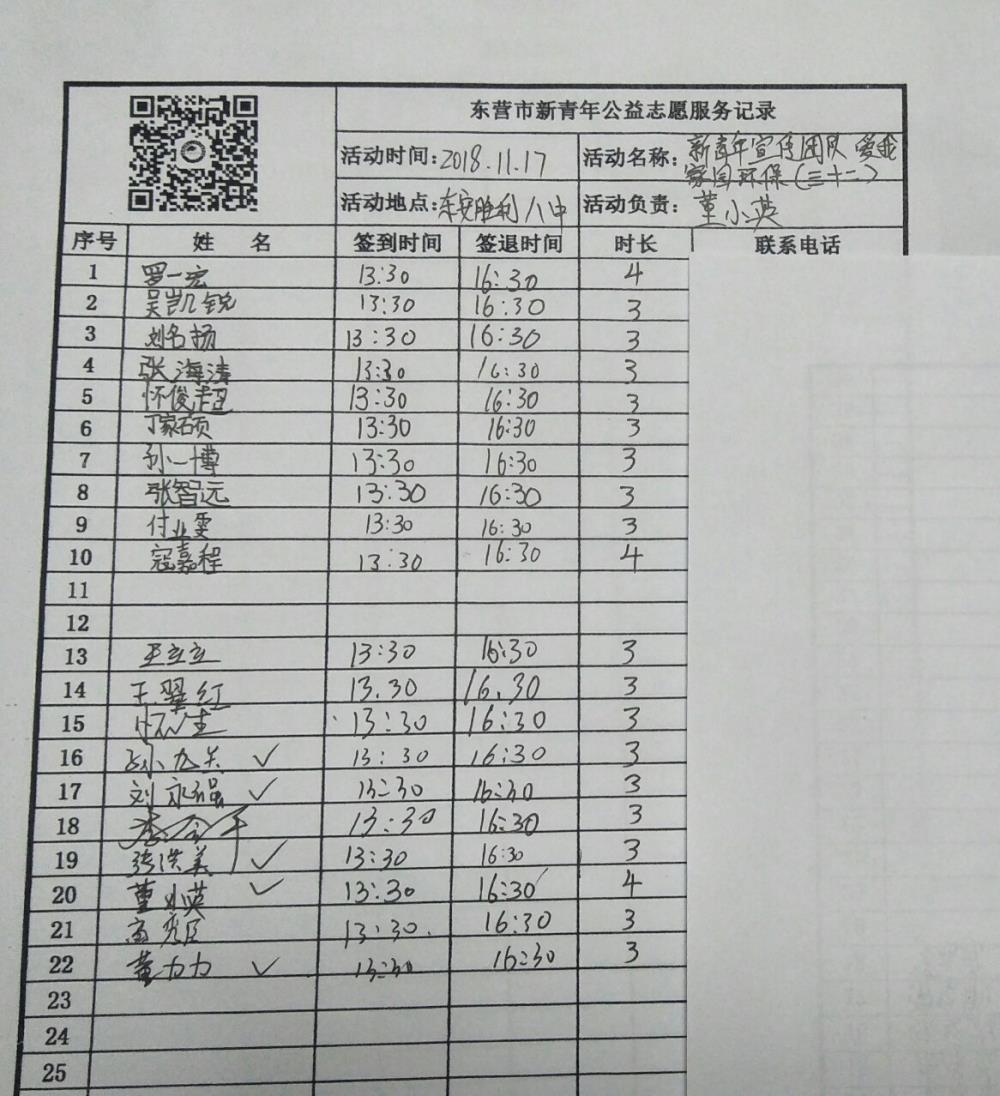 东营市新青年公益志愿服务记录
活动时间:2018.11.17 活动名称:新青年宣传团队 爱我
家园环保(三十二)
活动地点:东安胜利八中 活动负责:董小英
序号 姓 名 签到时间 签退时间 时长 联系电话
1 罗一宏 13:30 16:30 4
2 吴凯锐 13:30 16:30 3
3 刘名扬 13:30 16:30 3
4 张海涛 13:30 16:30 3
5 怀俊超 13:30 16:30 3
6 丁家硕 13:30 16:30 3
7 孙一博 13:30 16:30 3
8 张智远 13:30 16:30 3
9 付业雯 13:30 16:30 3
10 寇嘉程 13:30 16:30 4
11
12
13 王立立 13:30 16:30 3
14 王翠红 13.30 16.30 3
15 13:30 16:30 3
16 ✓ 13:30 16:30 3
17 刘永强 ✓ 13:30 16:30 3
18 13:30 16:30 3
19 张洪美 ✓ 13:30 16:30 3
20 董小英 ✓ 13:30 16:30 4
21 13:30. 16:30 3
22 董力力 ✓ 13:30 16:30 3
23
24
25